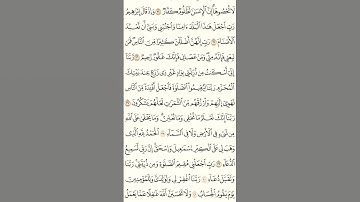 لَا تُحْصُوهَآ إِنَّ ٱلْإِنسَٰنَ لَظَلُومٌ كَفَّارٌ وَإِذْ قَالَ إِبْرَٰهِيمُ
رَبِّ ٱجْعَلْ هَٰذَا ٱلْبَلَدَ ءَامِنًا وَٱجْنُبْنِي وَبَنِيَّ أَن نَّعْبُدَ
ٱلْأَصْنَامَ رَبِّ إِنَّهُنَّ أَضْلَلْنَ كَثِيرًا مِّنَ ٱلنَّاسِ فَمَن
تَبِعَنِي فَإِنَّهُۥ مِنِّي وَمَنْ عَصَانِي فَإِنَّكَ غَفُورٌ رَّحِيمٌ رَّبَّنَآ
إِنِّيٓ أَسْكَنتُ مِن ذُرِّيَّتِي بِوَادٍ غَيْرِ ذِي زَرْعٍ عِندَ بَيْتِكَ
ٱلْمُحَرَّمِ رَبَّنَا لِيُقِيمُوا۟ ٱلصَّلَوٰةَ فَٱجْعَلْ أَفْـِٔدَةً مِّنَ ٱلنَّاسِ
تَهْوِيٓ إِلَيْهِمْ وَٱرْزُقْهُم مِّنَ ٱلثَّمَرَٰتِ لَعَلَّهُمْ يَشْكُرُونَ
رَبَّنَآ إِنَّكَ تَعْلَمُ مَا نُخْفِي وَمَا نُعْلِنُ وَمَا يَخْفَىٰ عَلَى ٱللَّهِ
مِن شَيْءٍ فِي ٱلْأَرْضِ وَلَا فِي ٱلسَّمَآءِ ٱلْحَمْدُ لِلَّهِ ٱلَّذِي
وَهَبَ لِي عَلَى ٱلْكِبَرِ إِسْمَٰعِيلَ وَإِسْحَٰقَ إِنَّ رَبِّي لَسَمِيعُ
ٱلدُّعَآءِ رَبِّ ٱجْعَلْنِي مُقِيمَ ٱلصَّلَوٰةِ وَمِن ذُرِّيَّتِي رَبَّنَا
وَتَقَبَّلْ دُعَآءِ رَبَّنَا ٱغْفِرْ لِي وَلِوَٰلِدَيَّ وَلِلْمُؤْمِنِينَ
يَوْمَ يَقُومُ ٱلْحِسَابُ وَلَا تَحْسَبَنَّ ٱللَّهَ غَٰفِلًا عَمَّا يَعْمَلُ